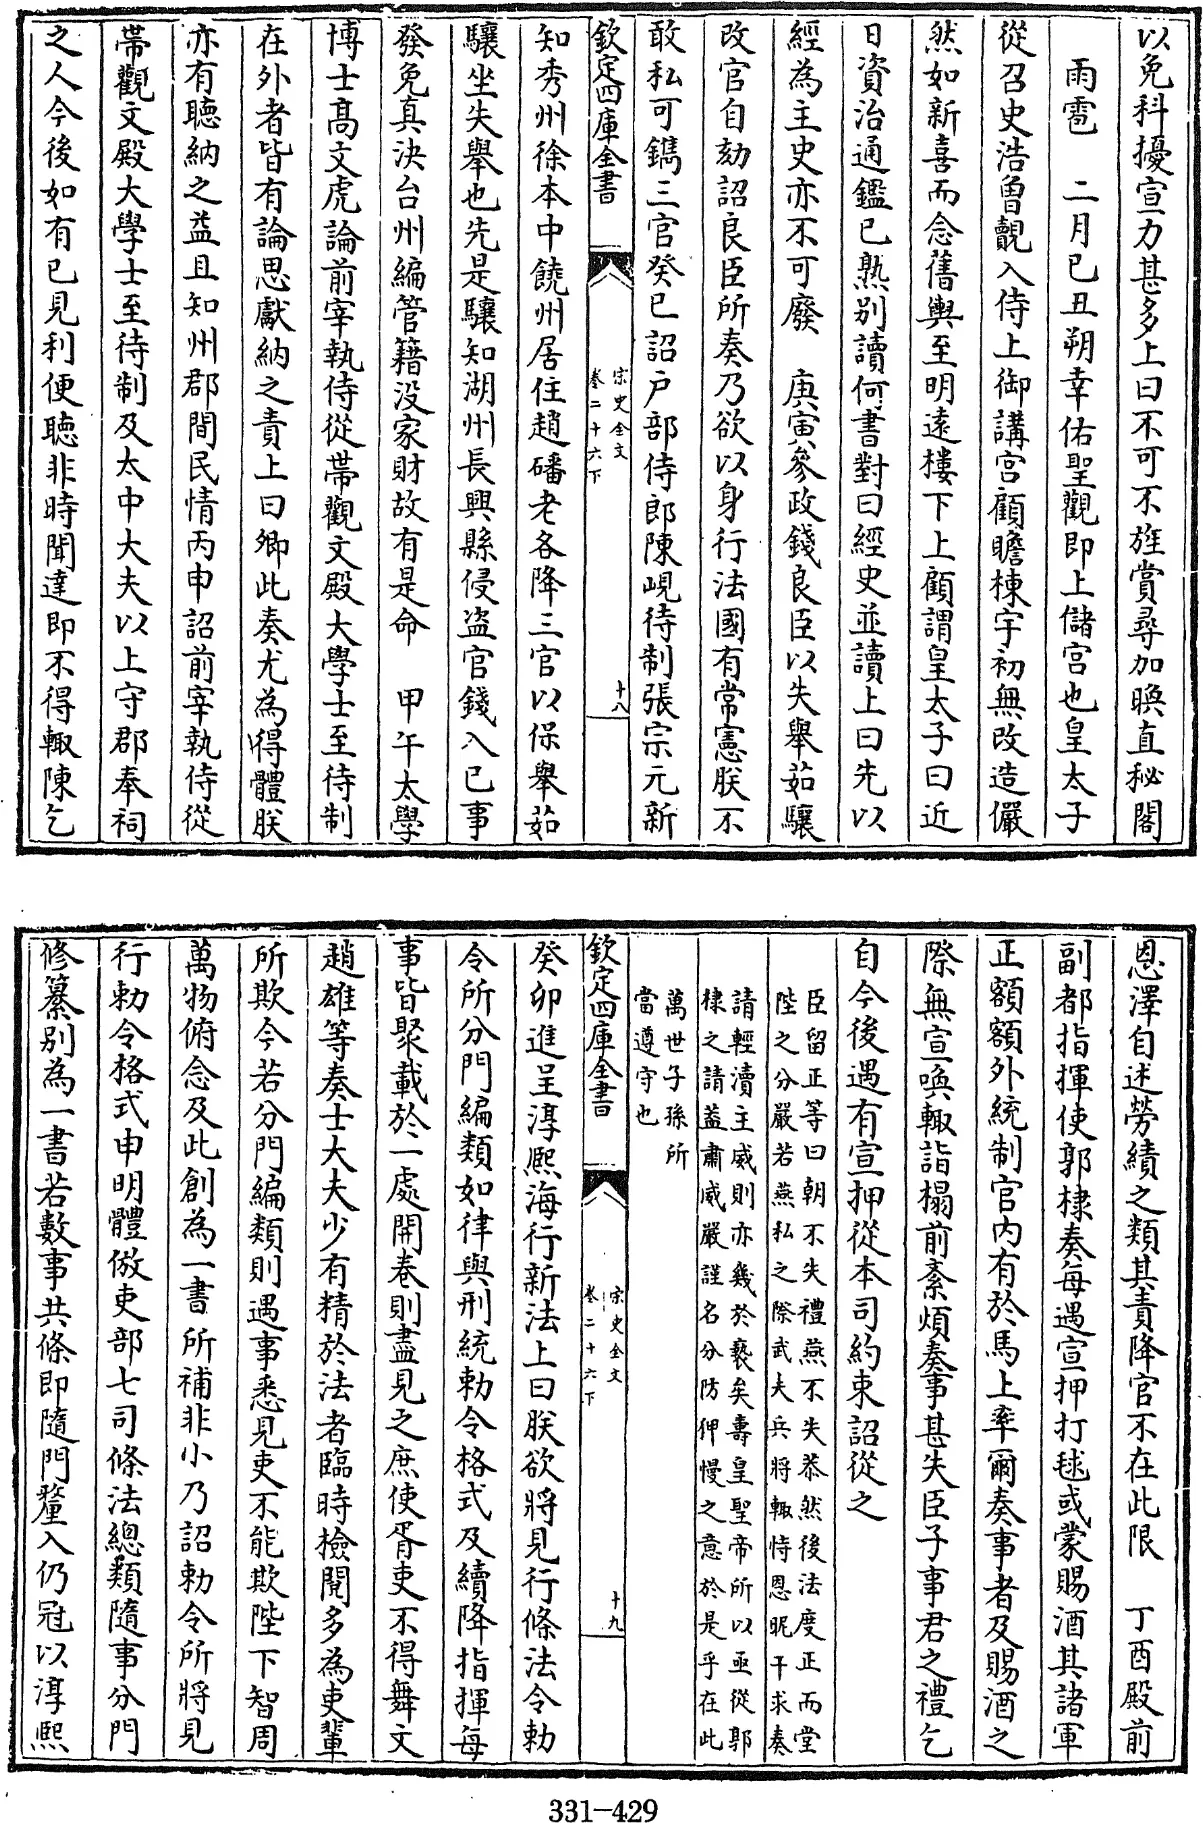 以免科擾宣力甚多上曰不可不旌賞尋加㬇直秘閣
雨雹　二月己丑朔幸佑聖觀即上儲宫也皇太子
從召史浩曾覿入侍上御講宫顧瞻棟宇初無改造儼
然如新喜而念舊輿至明遠樓下上顧謂皇太子曰近
日資治通鑑已熟别讀何書對曰經史並讀上曰先以
經為主史亦不可廢　庚寅參政錢良臣以失舉茹驤
改官自劾詔良臣所奏乃欲以身行法國有常憲朕不
敢私可鐫三官癸巳詔户部侍郎陳峴待制張宗元新
欽定四庫全書
宋史全文
卷二十六下
十八
知秀州徐本中饒州居住趙磻老各降三官以保舉茹
驤坐失舉也先是驤知湖州長興縣侵盜官錢入己事
發免真決台州編管籍没家財故有是命　甲午太學
博士髙文虎論前宰執侍從帶觀文殿大學士至待制
在外者皆有論思獻納之責上曰卿此奏尤為得體朕
亦有聽納之益且知州郡間民情丙申詔前宰執侍從
帶觀文殿大學士至待制及太中大夫以上守郡奉祠
之人今後如有己見利便聽非時聞達即不得輙陳乞
恩澤自述勞績之類其責降官不在此限　丁酉殿前
副都指揮使郭棣奏每遇宣押打毬或蒙賜酒其諸軍
正額額外統制官内有於馬上率爾奏事者及賜酒之
際無宣喚輙詣榻前紊煩奏事甚失臣子事君之禮乞
自今後遇有宣押從本司約束詔從之
臣留正等曰朝不失禮燕不失恭然後法度正而堂
陛之分嚴若燕私之際武夫兵將輙恃恩昵干求奏
請輕瀆主威則亦幾於褻矣壽皇聖帝所以亟從郭
棣之請葢肅威嚴謹名分防狎慢之意於是乎在此
萬世子孫所
當遵守也
欽定四庫全書
宋史全文
卷二十六下
十九
癸卯進呈淳熙海行新法上曰朕欲將見行條法令勅
令所分門編類如律與刑統勅令格式及續降指揮每
事皆聚載於一處開卷則盡見之庶使胥吏不得舞文
趙雄等奏士大夫少有精於法者臨時檢閲多為吏輩
所欺今若分門編類則遇事悉見吏不能欺陛下智周
萬物俯念及此創為一書所補非小乃詔勅令所將見
行勅令格式申明體倣吏部七司條法總類隨事分門
修纂别為一書若數事共條即隨門釐入仍冠以淳熙
331-429